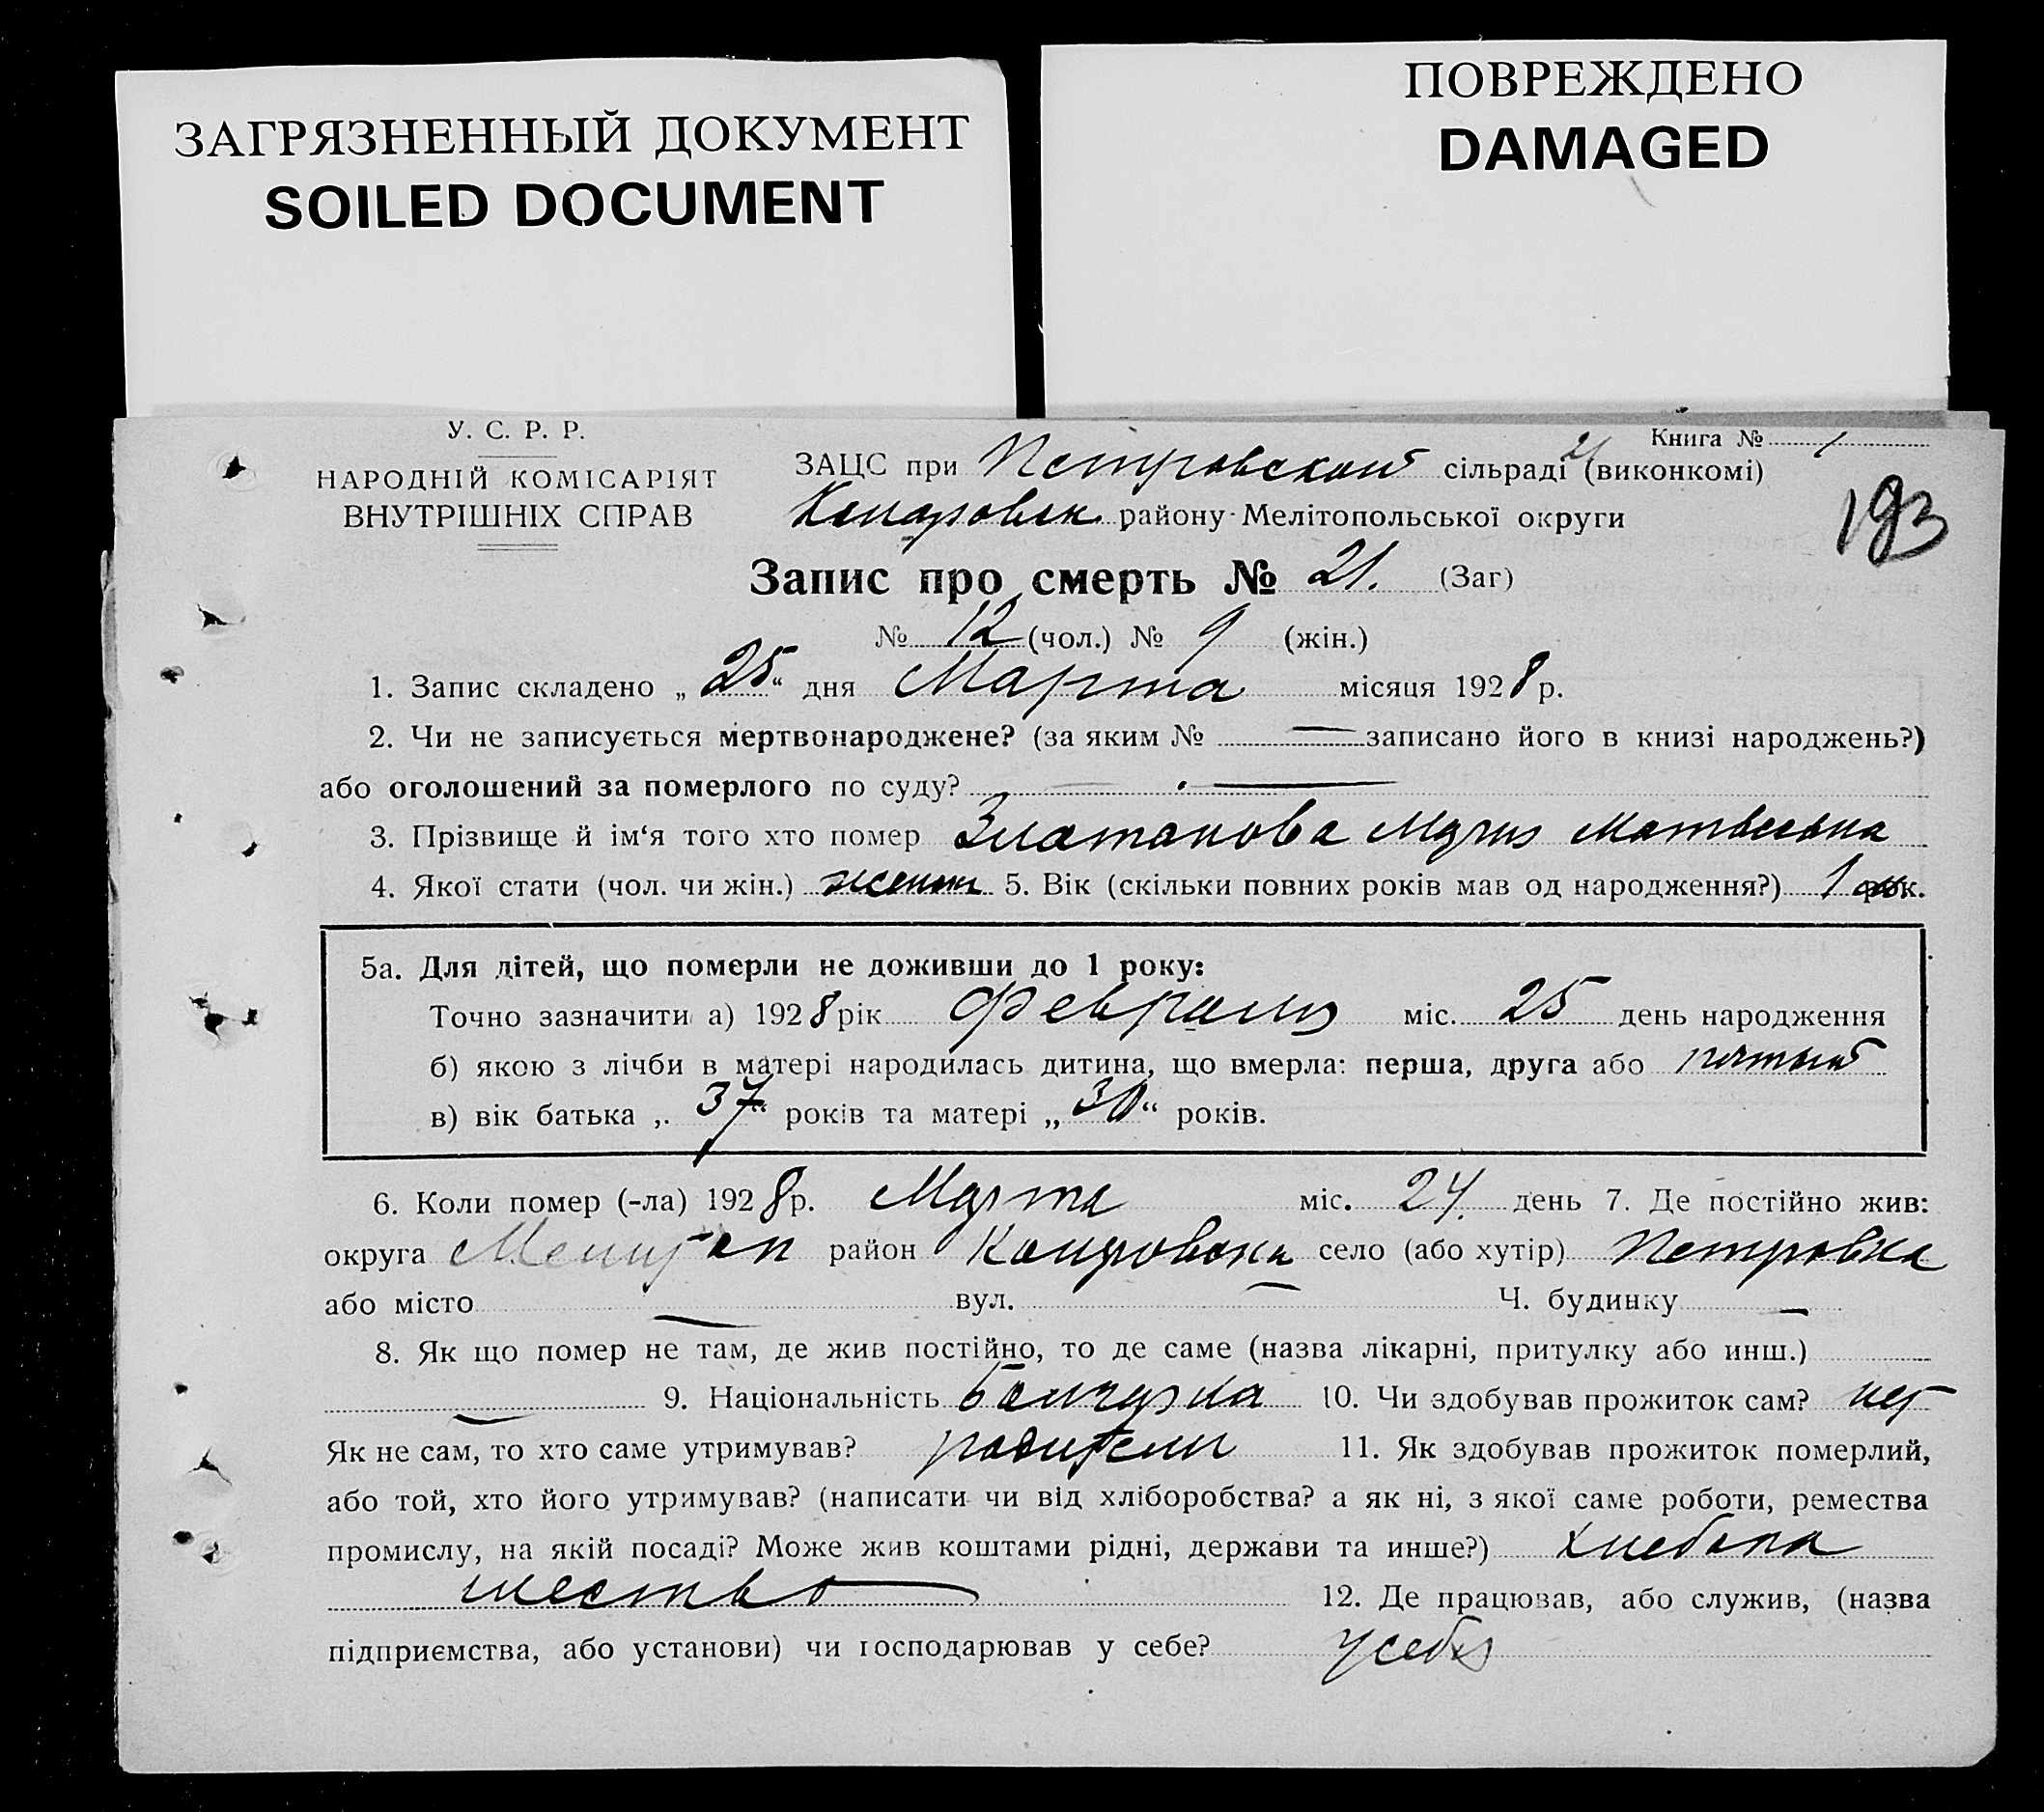 ЗАГРЯЗНЕННЫЙ ДОКУМЕНТ
SOILED DOCUMENT
ПОВРЕЖДЕНО
DAMAGED
У. С. Р. Р.
НАРОДНІЙ КОМІСАРІЯТ
ВНУТРІШНІХ СПРАВ
Книга № 1
ЗАЦС при Петровской сільраді (виконкомі)
району Мелітопольської округи
193
Запис про смерть № 21. (Заг)
№ 12 (чол.) № 9 (жін.)
1. Запис складено „ 25 “ дня Марта місяця 1928 р.
2. Чи не записується мертвонароджене? (за яким № — записано його в книзі народжень?)
або оголошений за померлого по суду? —
3. Прізвище й ім‘я того хто помер Златанова Мария Матвеевна
4. Якої стати (чол. чи жін.) женск 5. Вік (скільки повних років мав од народження?) 1 рок.
5а. Для дітей, що померли не доживши до 1 року:
Точно зазначити а) 1928 рік Февраля міс. 25 день народження
б) якою з лічби в матері народилась дитина, що вмерла: перша, друга або пятый
в) вік батька „ 37 “ років та матері „ 30 “ років.
6. Коли помер (-ла) 1928 р. Марта міс. 24. день 7. Де постійно жив:
округа район село (або хутір) Петровка
або місто — вул. — Ч. будинку —
8. Як що помер не там, де жив постійно, то де саме (назва лікарні, притулку або инш.)
— 9. Національність Болгарка 10. Чи здобував прожиток сам? нет
Як не сам, то хто саме утримував? родители 11. Як здобував прожиток померлий,
або той, хто його утримував? (написати чи від хліборобства? а як ні, з якої саме роботи, ремества
промислу, на якій посаді? Може жив коштами рідні, держави та инше?) хлебопа
шество 12. Де працював, або служив, (назва
підприємства, або установи) чи господарював у себе? у себя